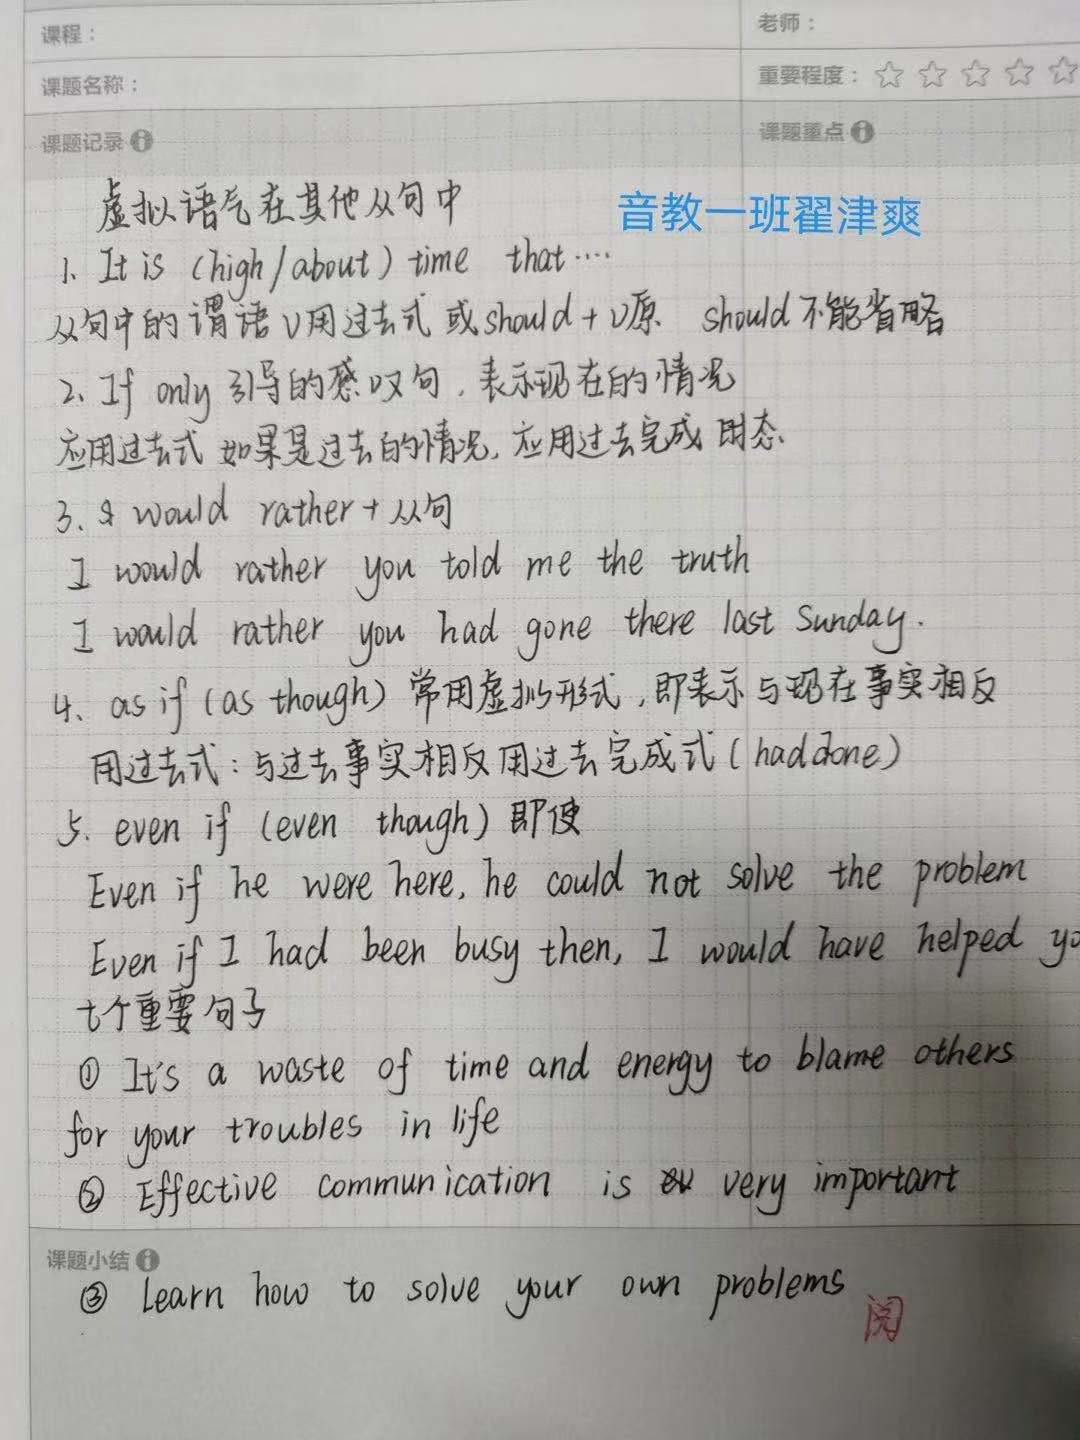 课程：
老师：
课题名称：
重要程度：
课题记录
课题重点
虚拟语气在其他从句中
音教一班翟津爽
1. It is (high/about) time that ····
从句中的谓语V用过去式 或should+V原 should不能省略
2. If only 引导的感叹句，表示现在的情况
应用过去式 如果是过去的情况，应用过去完成时态
3. would rather + 从句
I would rather you told me the truth
I would rather you had gone there last Sunday.
4. as if (as though) 常用虚拟形式，即表示与现在事实相反
用过去式：与过去事实相反用过去完成式(had done)
5. even if (even though) 即使
Even if he were here, he could not solve the problem
Even if I had been busy then, I would have helped yo
七个重要句子
① It's a waste of time and energy to blame others
for your troubles in life
② Effective communication is very important
课题小结
③ Learn how to solve your own problems
阅